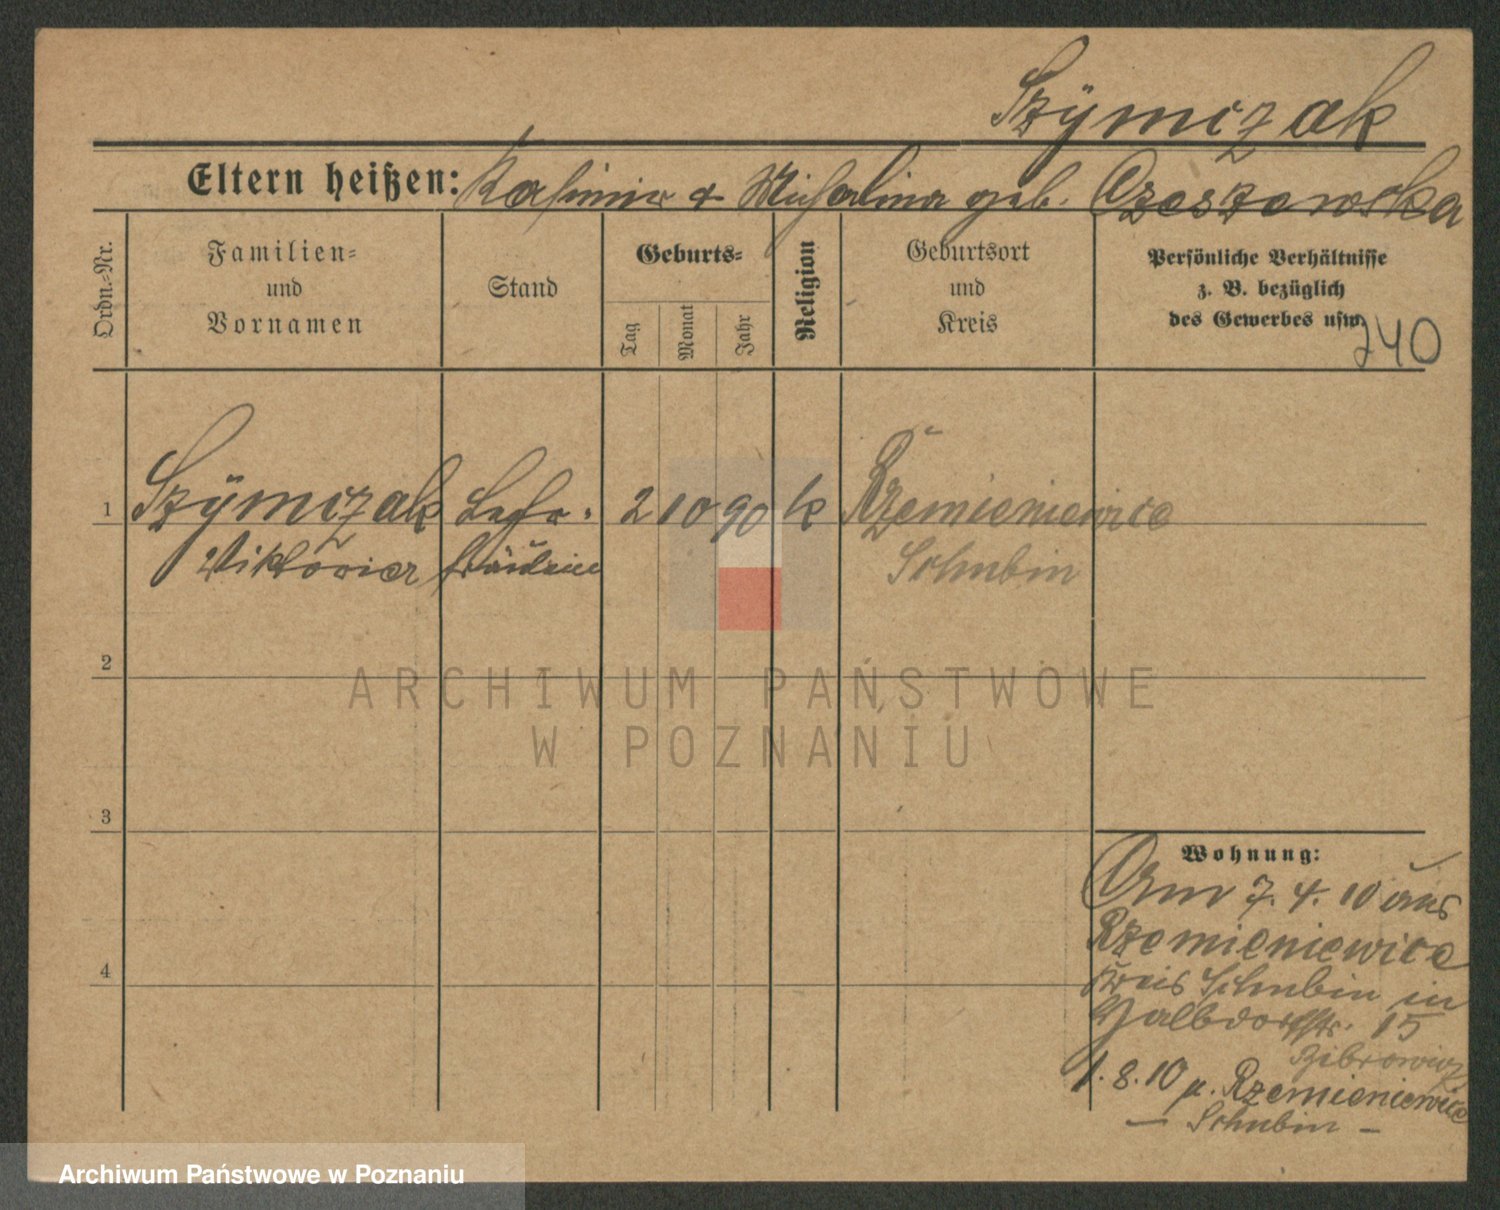 Szÿmczak
Eltern heißen: Kasimir & Michalina geb. Czeszewska
Ordn.-Nr.
Familien-
und
Vornamen
Stand
Geburts-
Tag
Monat
Jahr
Religion
Geburtsort
und
Kreis
Persönliche Verhältnisse
z. B. bezüglich
des Gewerbes usw.
240
1
Szÿmczak
Viktoria
Lehr-
fräulein
2 10 90
k
Rzemieniewice
Schubin
2
3
4
Wohnung:
Am 7. 4. 10 aus
Rzemieniewice
Kreis Schubin in
Halbdorfstr. 15
1.8.10 n. Rzemieniewice
— Schubin —
ARCHIWUM PAŃSTWOWE
W POZNANIU
Archiwum Państwowe w Poznaniu